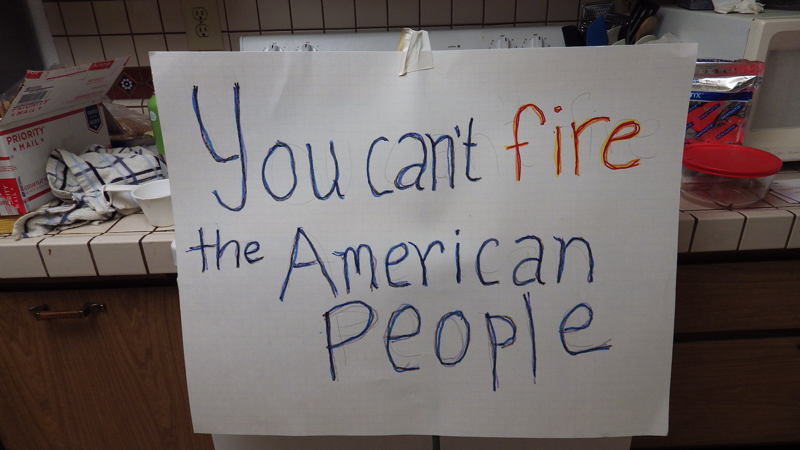 You can't fire
the American
People
PRIORITY
MAIL